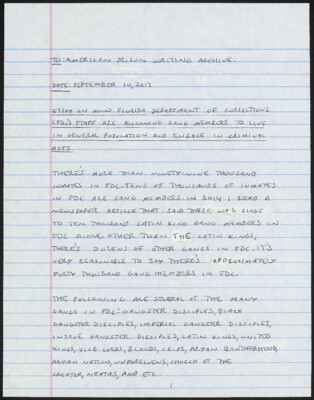 TO: AMERICAN PRISON WRITING ARCHIVE.
DATE: SEPTEMBER 10, 2017
ESSAY ON HOW FLORIDA DEPARTMENT OF CORRECTIONS
(FDC) STAFF ARE ALLOWING GANG MEMBERS TO LIVE
IN GENERAL POPULATION AND ENGAGE IN CRIMINAL
ACTS
THERE'S MORE THAN NINETY-NINE THOUSAND
INMATES IN FDC. TENS OF THOUSANDS OF INMATES
IN FDC ARE GANG MEMBERS. IN 2014 I READ A
NEWSPAPER ARTICLE THAT SAID THERE WAS CLOSE
TO TEN THOUSAND LATIN KING GANG MEMBERS IN
FDC ALONE. OTHER THAN THE LATIN KINGS,
THERE'S DOZENS OF OTHER GANGS IN FDC. IT'S
VERY REASONABLE TO SAY THERE'S APPROXIMATELY
FORTY THOUSAND GANG MEMBERS IN FDC.
THE FOLLOWING ARE SEVERAL OF THE MANY
GANGS IN FDC: GANGSTER DISCIPLES, BLACK
GANGSTER DISCIPLES, IMPERIAL GANGSTER DISCIPLES,
INSANE GANGSTER DISCIPLES, LATIN KINGS, UNITED
KINGS, VICE LORDS, BLOODS, CRIPS, ARYAN BROTHERHOOD,
ARYAN NATION, UNFORGIVENS, CHURCH OF THE
CREATOR, NETAS, AND ETC.
1